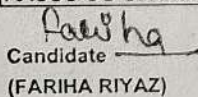 Fariha
Candidate
(FARIHA RIYAZ)